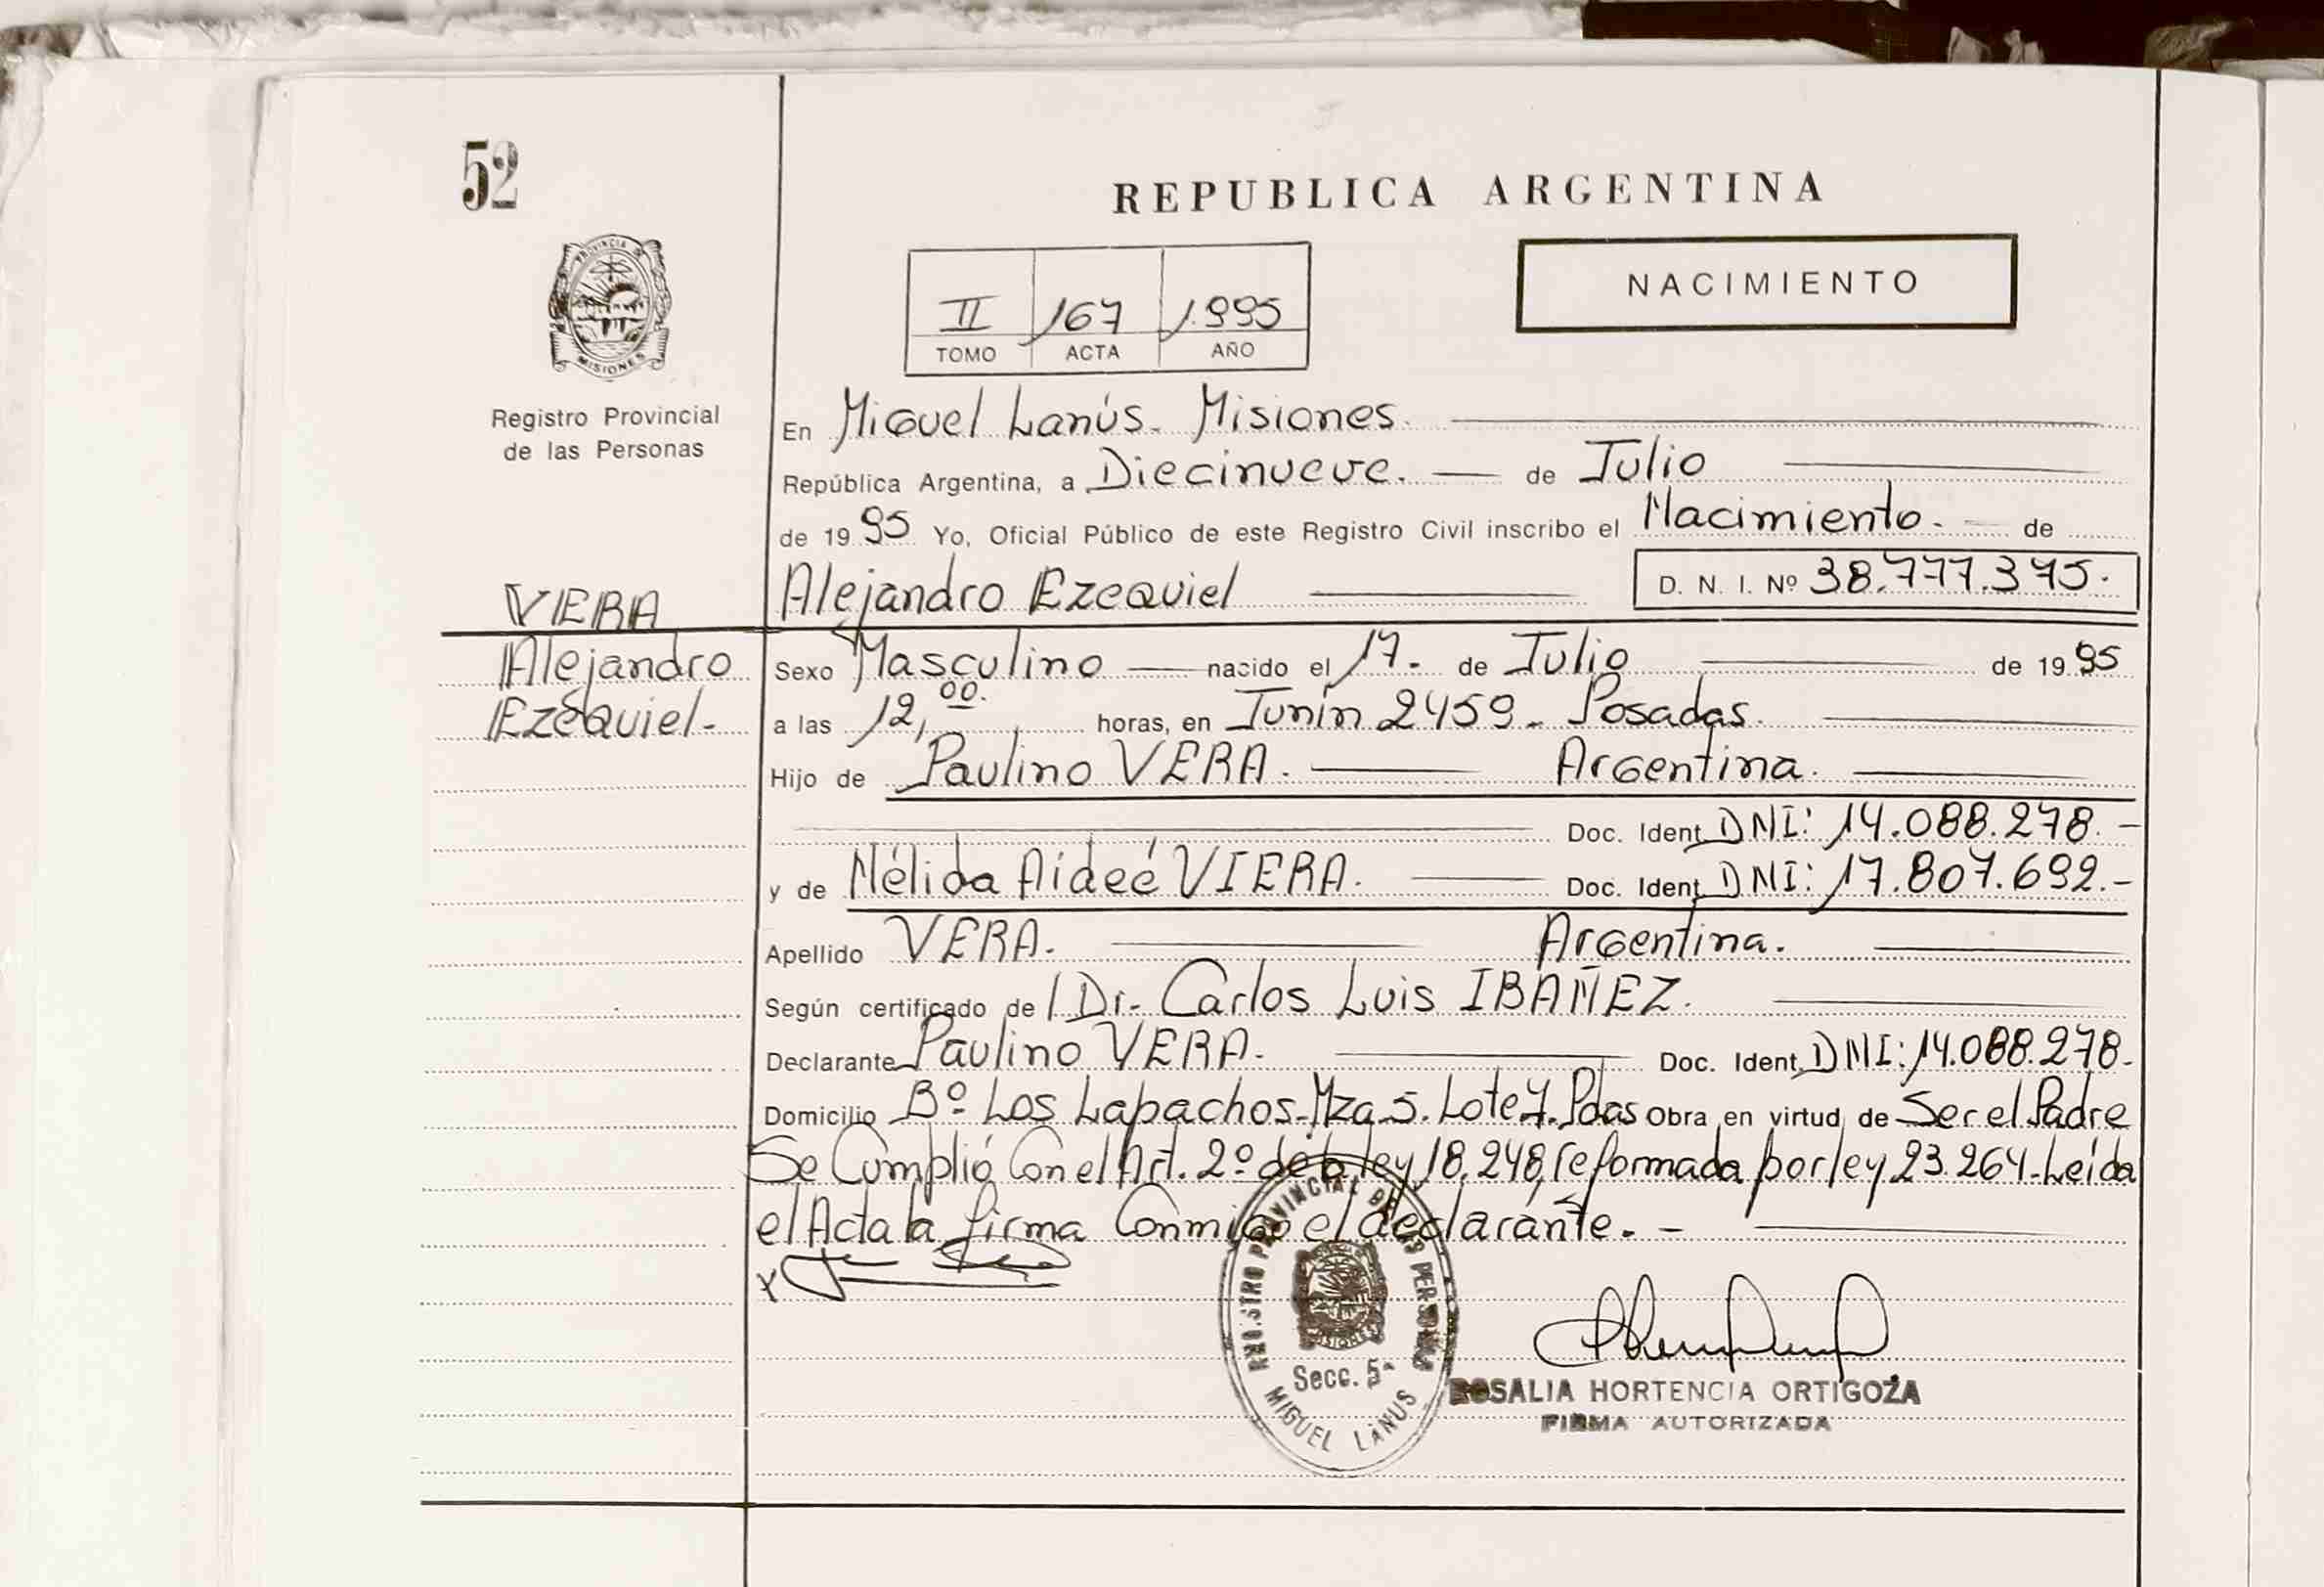 52
REPUBLICA ARGENTINA
PROVINCIA DE
MISIONES
Registro Provincial
de las Personas
II 167 1.995
TOMO ACTA AÑO
NACIMIENTO
En Miguel Lanús. Misiones.
República Argentina, a Diecinueve. de Julio
de 1995 Yo, Oficial Público de este Registro Civil inscribo el Nacimiento. de
Alejandro Ezequiel D. N. I. Nº 38.777.375.
VERA
Alejandro
Ezequiel-
Sexo Masculino nacido el 17. de Julio de 1995
a las 12,00. horas, en Junin 2459- Posadas.
Hijo de Paulino VERA. Argentina.
Doc. Ident. DNI: 14.088.278.-
y de Nélida Aideé VIERA. Doc. Ident. DNI: 17.807.692.-
Apellido VERA. Argentina.
Según certificado de / Dr. Carlos Luis IBAÑEZ.
Declarante Paulino VERA. Doc. Ident. DNI: 14.088.278.
Domicilio Bº Los Lapachos-Mza 5. Lote 7. Pdas Obra en virtud de Ser el Padre
Se Cumplió Con el Art. 2º de la ley 18.248, reformada por ley 23.264- Leída
el Acta la firma Conmigo el declarante.-
REGISTRO PROVINCIAL DE LAS PERSONAS
MISIONES
Secc. 5ª
MIGUEL LANUS
ROSALIA HORTENCIA ORTIGOZA
FIRMA AUTORIZADA